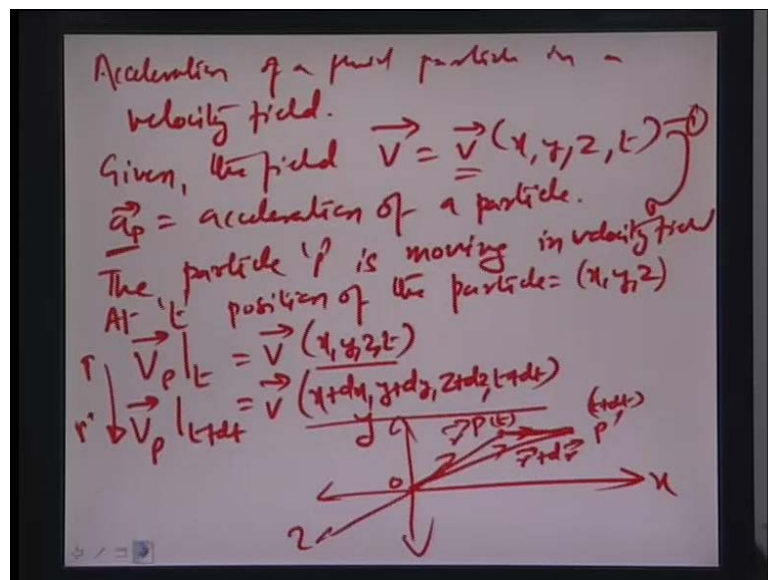 Acceleration of a fluid particle in a
velocity field.
Given, the field V⃗ = V⃗ (x, y, z, t) → ①
a⃗p = acceleration of a particle.
The particle 'P' is moving in velocity field
At 't' position of the particle = (x, y, z)
P V⃗p|t = V⃗ (x, y, z, t)
P' V⃗p|t+dt = V⃗ (x+dx, y+dy, z+dz, t+dt)
y r⃗ P(t) (t+dt) P'
r⃗+dr⃗
o x
z